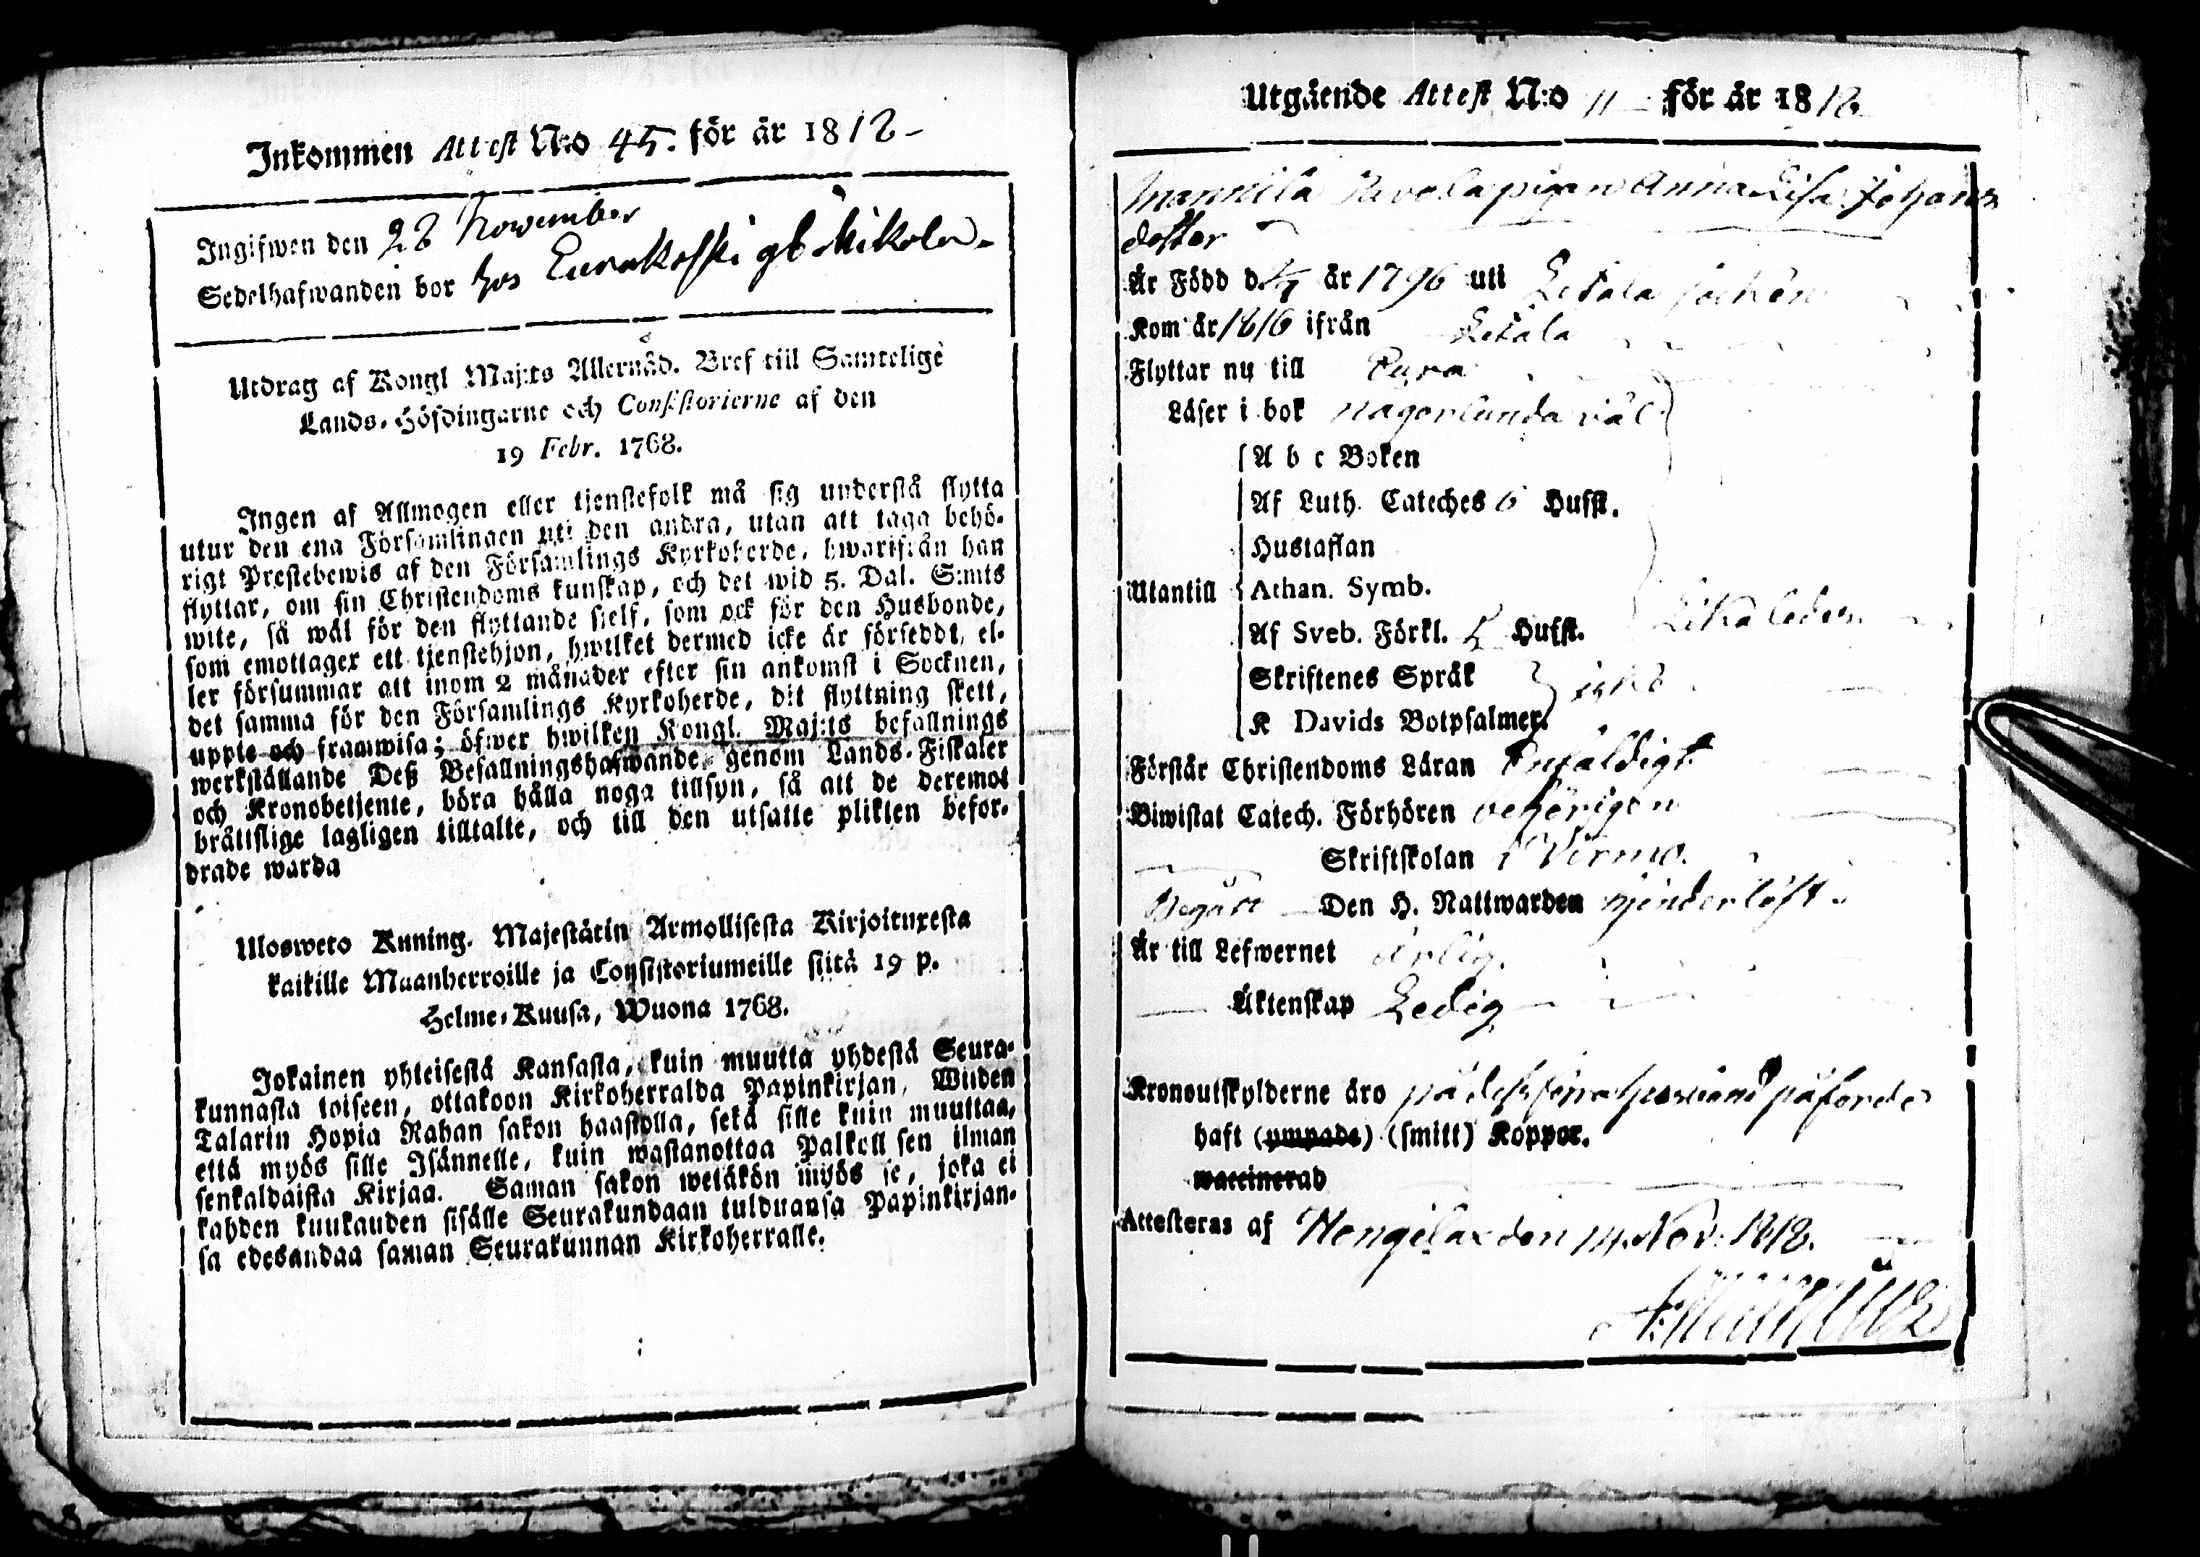 Inkommen Attest N:o 45. för år 1818
Ingifwen den 28 November
Sedelhafwanden bor hos Eurakoski gb Mikola
Utdrag af Kongl Maj:ts Allernåd. Bref till Samtelige
Lands-Höfdingarne och Consistorierne af den
19 Febr. 1768.
Ingen af Allmogen eller tjenstefolk må sig understå flytta
utur den ena Församlingen uti den andra, utan att taga behö-
rigt Prestebewis af den Församlings Kyrkoherde, hwarifrån han
flyttar, om sin Christendoms kunskap, och det wid 5. Dal. S:mts
wite, så wäl för den flyttande sielf, som ock för den Husbonde,
som emottager ett tjenstehjon, hwilket dermed icke är försedt, el-
ler försummar att inom 2 månader efter sin ankomst i Socknen,
det samma för den Församlings Kyrkoherde, dit flyttning skett,
uppte och framwisa; öfwer hwilken Kongl. Maj:ts befallnings
werkställande Deß Befallningshafwande, genom Lands-Fiskaler
och Kronobetjente, böra hålla noga tillsyn, så att de deremot
bråttslige lagligen tilltalte, och till den utsatte plikten befor-
drade warda
Ulosweto Kuning. Majestätin Armollisesta Kirjoituxesta
kaikille Maanherroille ja Consistoriumeille siitä 19 p.
Helme-Kuusa, Wuona 1768.
Jokainen yhteisestä Kansasta, kuin muutta yhdestä Seura-
kunnasta toiseen, ottakoon Kirkoherralda Papinkirjan, Wiiden
Talarin Hopia Rahan sakon haastolla, sekä sille kuin muuttaa,
että myös sille Isännelle, kuin wastanottaa Palkollisen ilman
senkaldaista Kirjaa. Saman sakon wetäkön myös se, joka ei
kahden kuukauden sisälle Seurakundaan tulduansa Papinkirjan-
sa edesandaa saman Seurakunnan Kirkoherralle.
Utgående Attest N:o 11 för år 1818
Mannila pigan Anna Lisa Johans
dotter
Är Född d. år 1796 uti Letala socken
Kom år 1816 ifrån Letala
Flyttar nu till Eura
Läser i bok någorlunda väl
A b c Boken
Af Luth. Cateches 6 Hufst.
Hustaflan
Utantill Athan. Symb.
Af Sveb. Förkl. 5 Hufst. Lika leden
Skriftenes Språk icke
K Davids Botpsalmer.
Förstår Christendoms Läran Enfäldigt
Biwistat Catech. Förhören behörigen
Skriftskolan i Virmo.
Begått Den H. Nattwarden hinderlöst.
Är till Lefwernet ärlig.
Äktenskap Ledig
Kronoutskylderne äro på dess förra husbond påförde
haft (ympade) (smitt) Koppor.
waccinerad
Attesteras af Hongilax den 14 Nov: 1818.